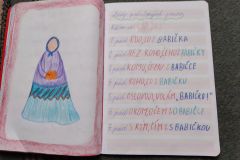 1. pád KDO? CO? BABIČKA
2. pád BEZ KOHO? ČEHO? BABIČKY
3. pád KOMU? ČEMU? BABIČCE
4. pád KOHO? CO? BABIČKU
5. pád OSLOVUJI, VOLÁM „BABIČKO!"
6. pád O KOM? O ČEM? O BABIČCE
7. pád S KÝM? S ČÍM? S BABIČKOU